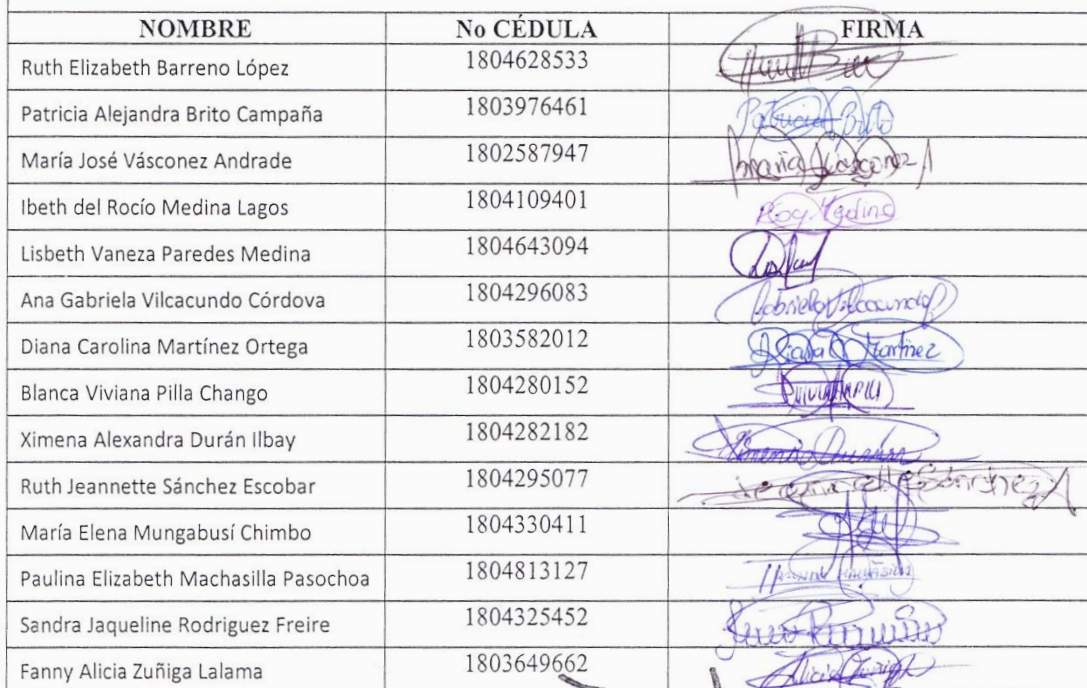 NOMBRE No CÉDULA FIRMA
Ruth Elizabeth Barreno López 1804628533
Patricia Alejandra Brito Campaña 1803976461 Patricia Brito
María José Vásconez Andrade 1802587947 María Vásconez A
Ibeth del Rocío Medina Lagos 1804109401 Medina
Lisbeth Vaneza Paredes Medina 1804643094
Ana Gabriela Vilcacundo Córdova 1804296083 Gabriela Vilcacundo
Diana Carolina Martínez Ortega 1803582012 Diana C Martínez
Blanca Viviana Pilla Chango 1804280152
Ximena Alexandra Durán Ilbay 1804282182 Ximena Durán
Ruth Jeannette Sánchez Escobar 1804295077
María Elena Mungabusí Chimbo 1804330411
Paulina Elizabeth Machasilla Pasochoa 1804813127
Sandra Jaqueline Rodriguez Freire 1804325452
Fanny Alicia Zuñiga Lalama 1803649662 Alicia Zuñiga